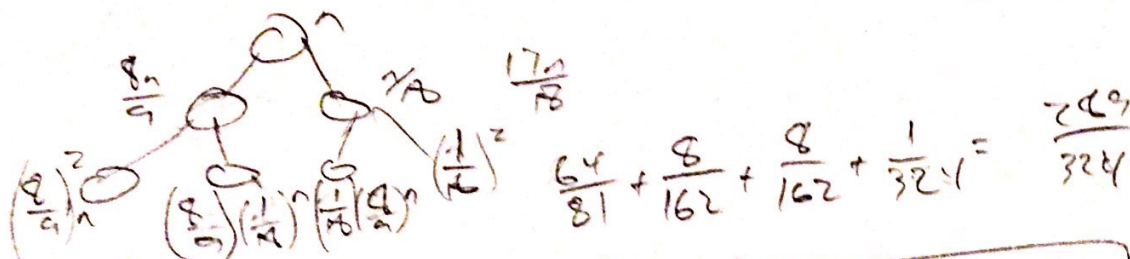 n
8n/9 n/18 17n/18
(8/9)²n (8/9)(1/18)n (1/18)(8/9)n (1/18)² 64/81 + 8/162 + 8/162 + 1/324 = 289/324